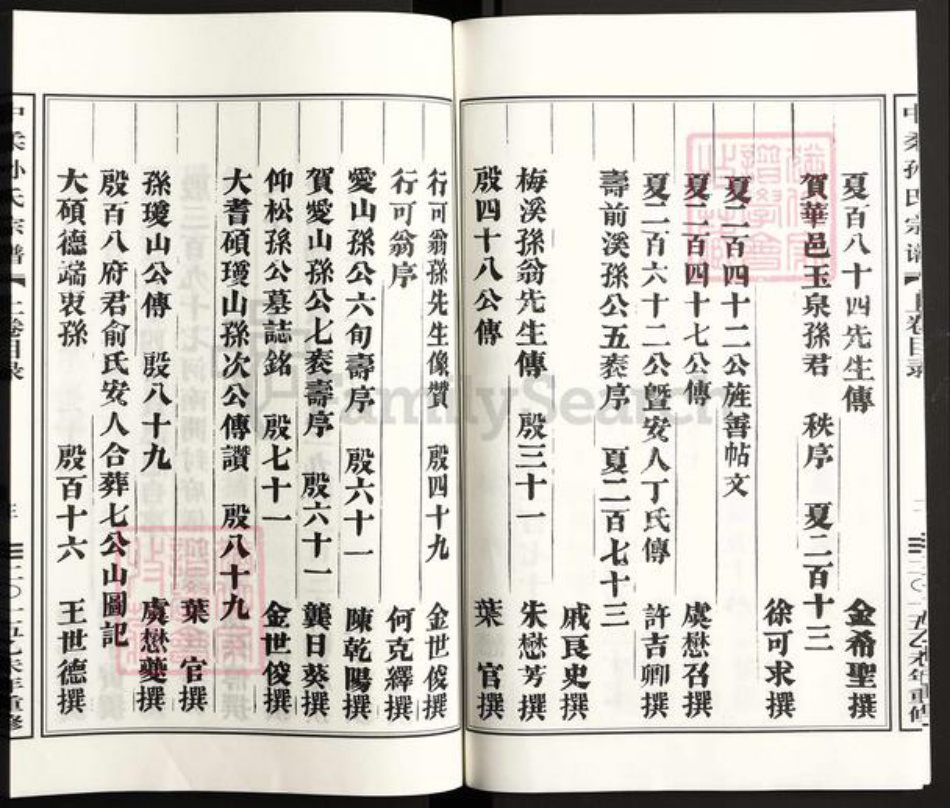 夏百八十四先生傳 金希聖撰
賀華邑玉泉孫君 秩序 夏二百十三
徐可求撰
夏二百四十二公旌善帖文
夏二百四十七公傳 虞懋召撰
夏二百六十二公暨安人丁氏傳 許吉卿撰
壽前溪孫公五袠序 夏二百七十三
戚良史撰
梅溪孫翁先生傳 殷三十一 朱懋芳撰
殷四十八公傳 葉 官撰
行可翁孫先生像贊 殷四十九 金世俊撰
行可翁序 何克繹撰
愛山孫公六旬壽序 殷六十一 陳乾陽撰
賀愛山孫公七袠壽序 殷六十一 龔日葵撰
仰松孫公墓誌銘 殷七十一 金世俊撰
大耆碩瓊山孫次公傳讃 殷八十九
葉 官撰
孫瓊山公傳 殷八十九 虞懋夔撰
殷百八府君俞氏安人合葬七公山圖記
大碩德端衷孫 殷百十六 王世德撰
孙氏宗谱 上卷目录 二〇一五乙未年重修
FamilySearch